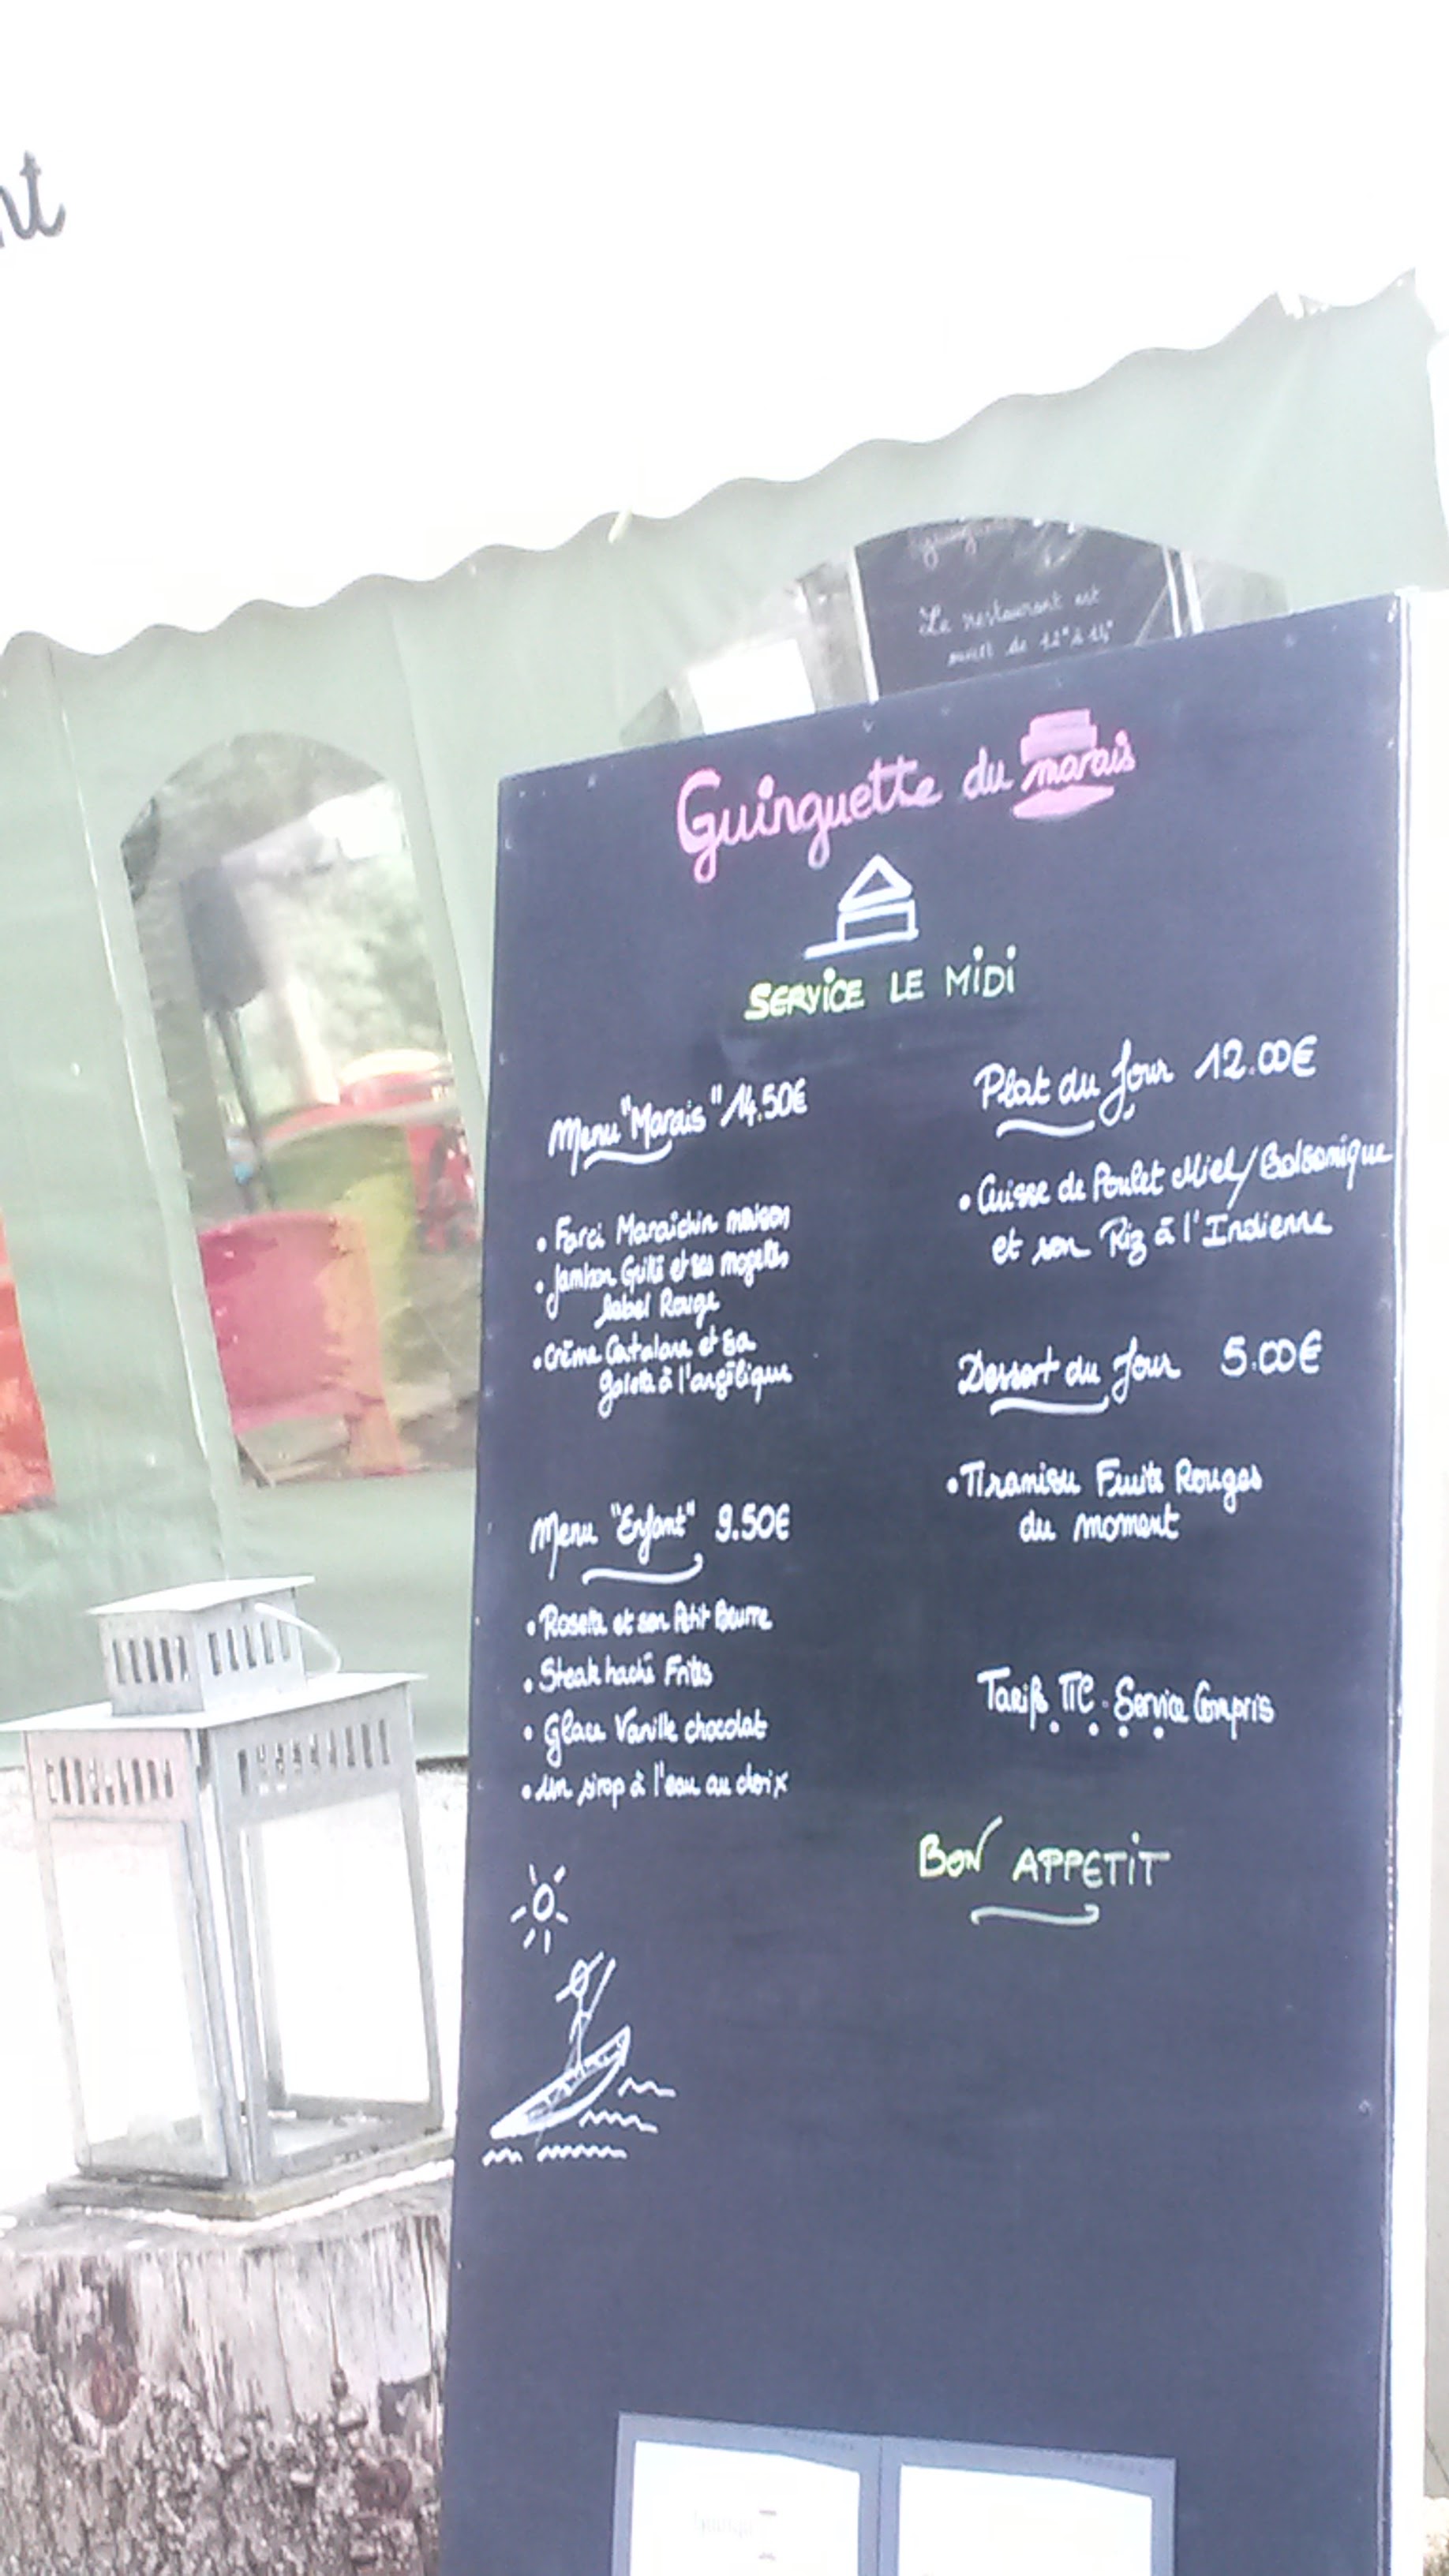 nt
Le restaurant est
ouvert de 12" à 14"
Guinguette du marais
SERVICE LE MIDI
Menu "Marais" 14.50€
• Farci Maraîchin maison
• Jambon Grillé et ses mogettes
label Rouge
• Crème Catalane et sa
galette à l'angélique
Menu "Enfant" 9.50€
• Rosette et son Petit Beurre
• Steak haché Frites
• Glace Vanille chocolat
• Un sirop à l'eau au choix
Plat du Jour 12.00€
• Cuisse de Poulet Miel/Balsamique
et son Riz à l'Indienne
Dessert du Jour 5.00€
• Tiramisu Fruits Rouges
du moment
Tarifs TTC. Service Compris
BON APPETIT